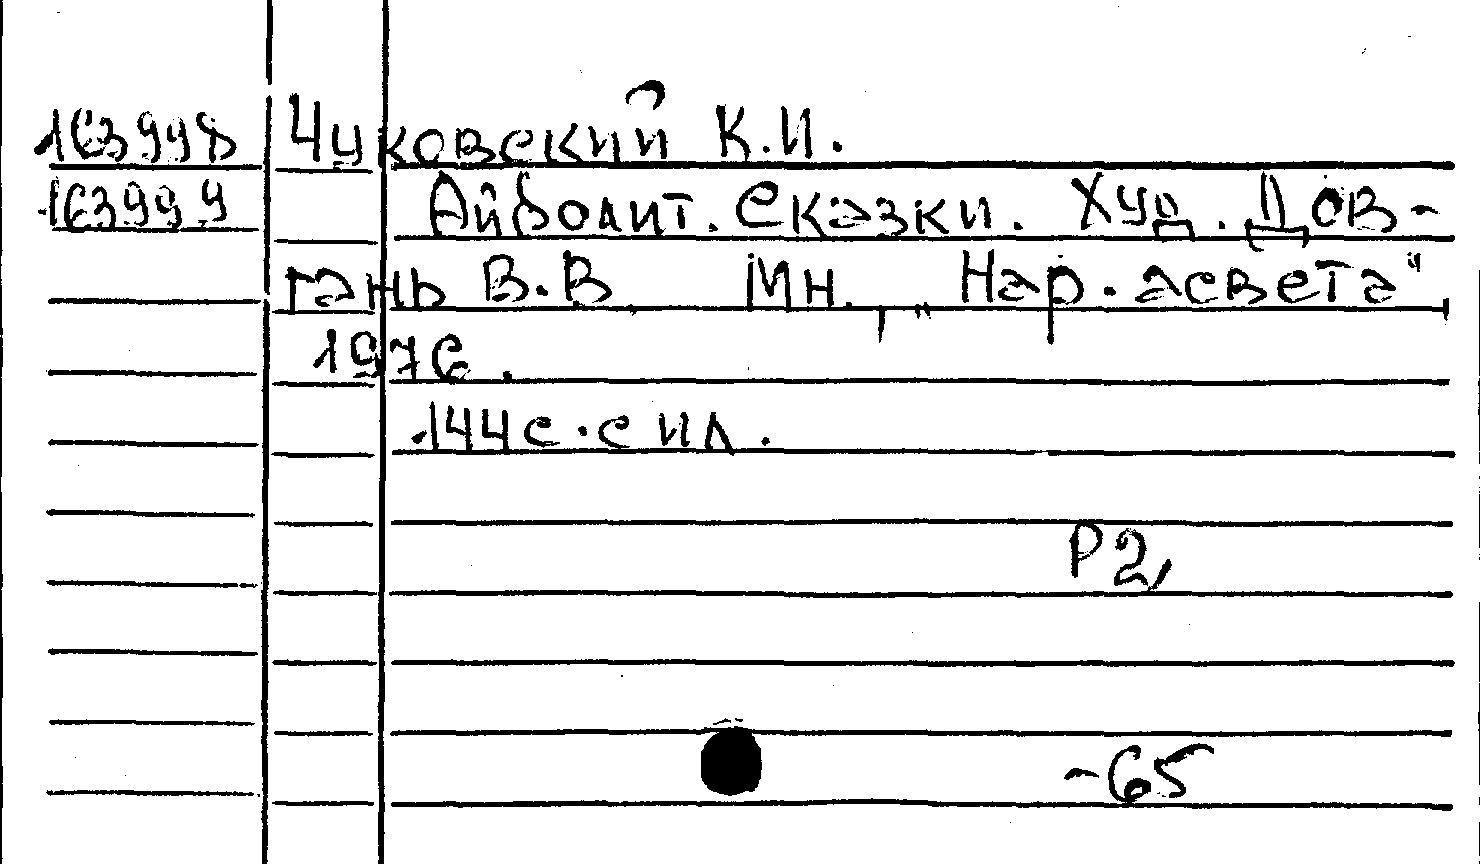 163998 Чуковский К.И.
163999 Айболит. Сказки. Худ. Дов-
гань В.В. Мн., „Нар. асвета"
1976.
144с. с ил.
Р2,
-65